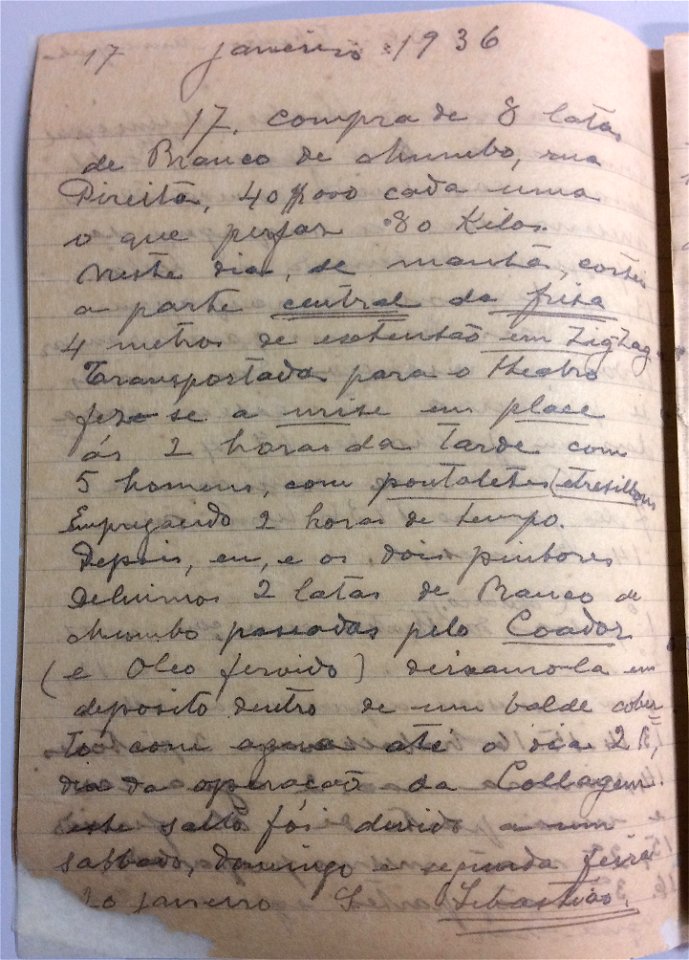 17 janeiro 1936
17. compra de 8 latas
de Branco de chumbo, rua
Direita, 40$000 cada uma
o que perfaz 80 Kilos.
Neste dia, de manhã, cortei
a parte central da frisa
4 metros de extensão em ZigZag.
Transportada para o theatro
fez-se a mise em place
ás 2 horas da tarde com
5 homens, com pontaletes (etresillons
Empregando 2 horas de tempo.
Depois, eu, e os dois pintores
deluimos 2 latas de Branco de
chumbo passadas pelo Coador
(e Oleo fervido) deixamo-la em
deposito dentro de um balde cober
to com agua até o dia 21,
dia da operação da Collagem.
este salto fói devido a um
sabbado, domingo e segunda feira
20 janeiro S Sebastião.